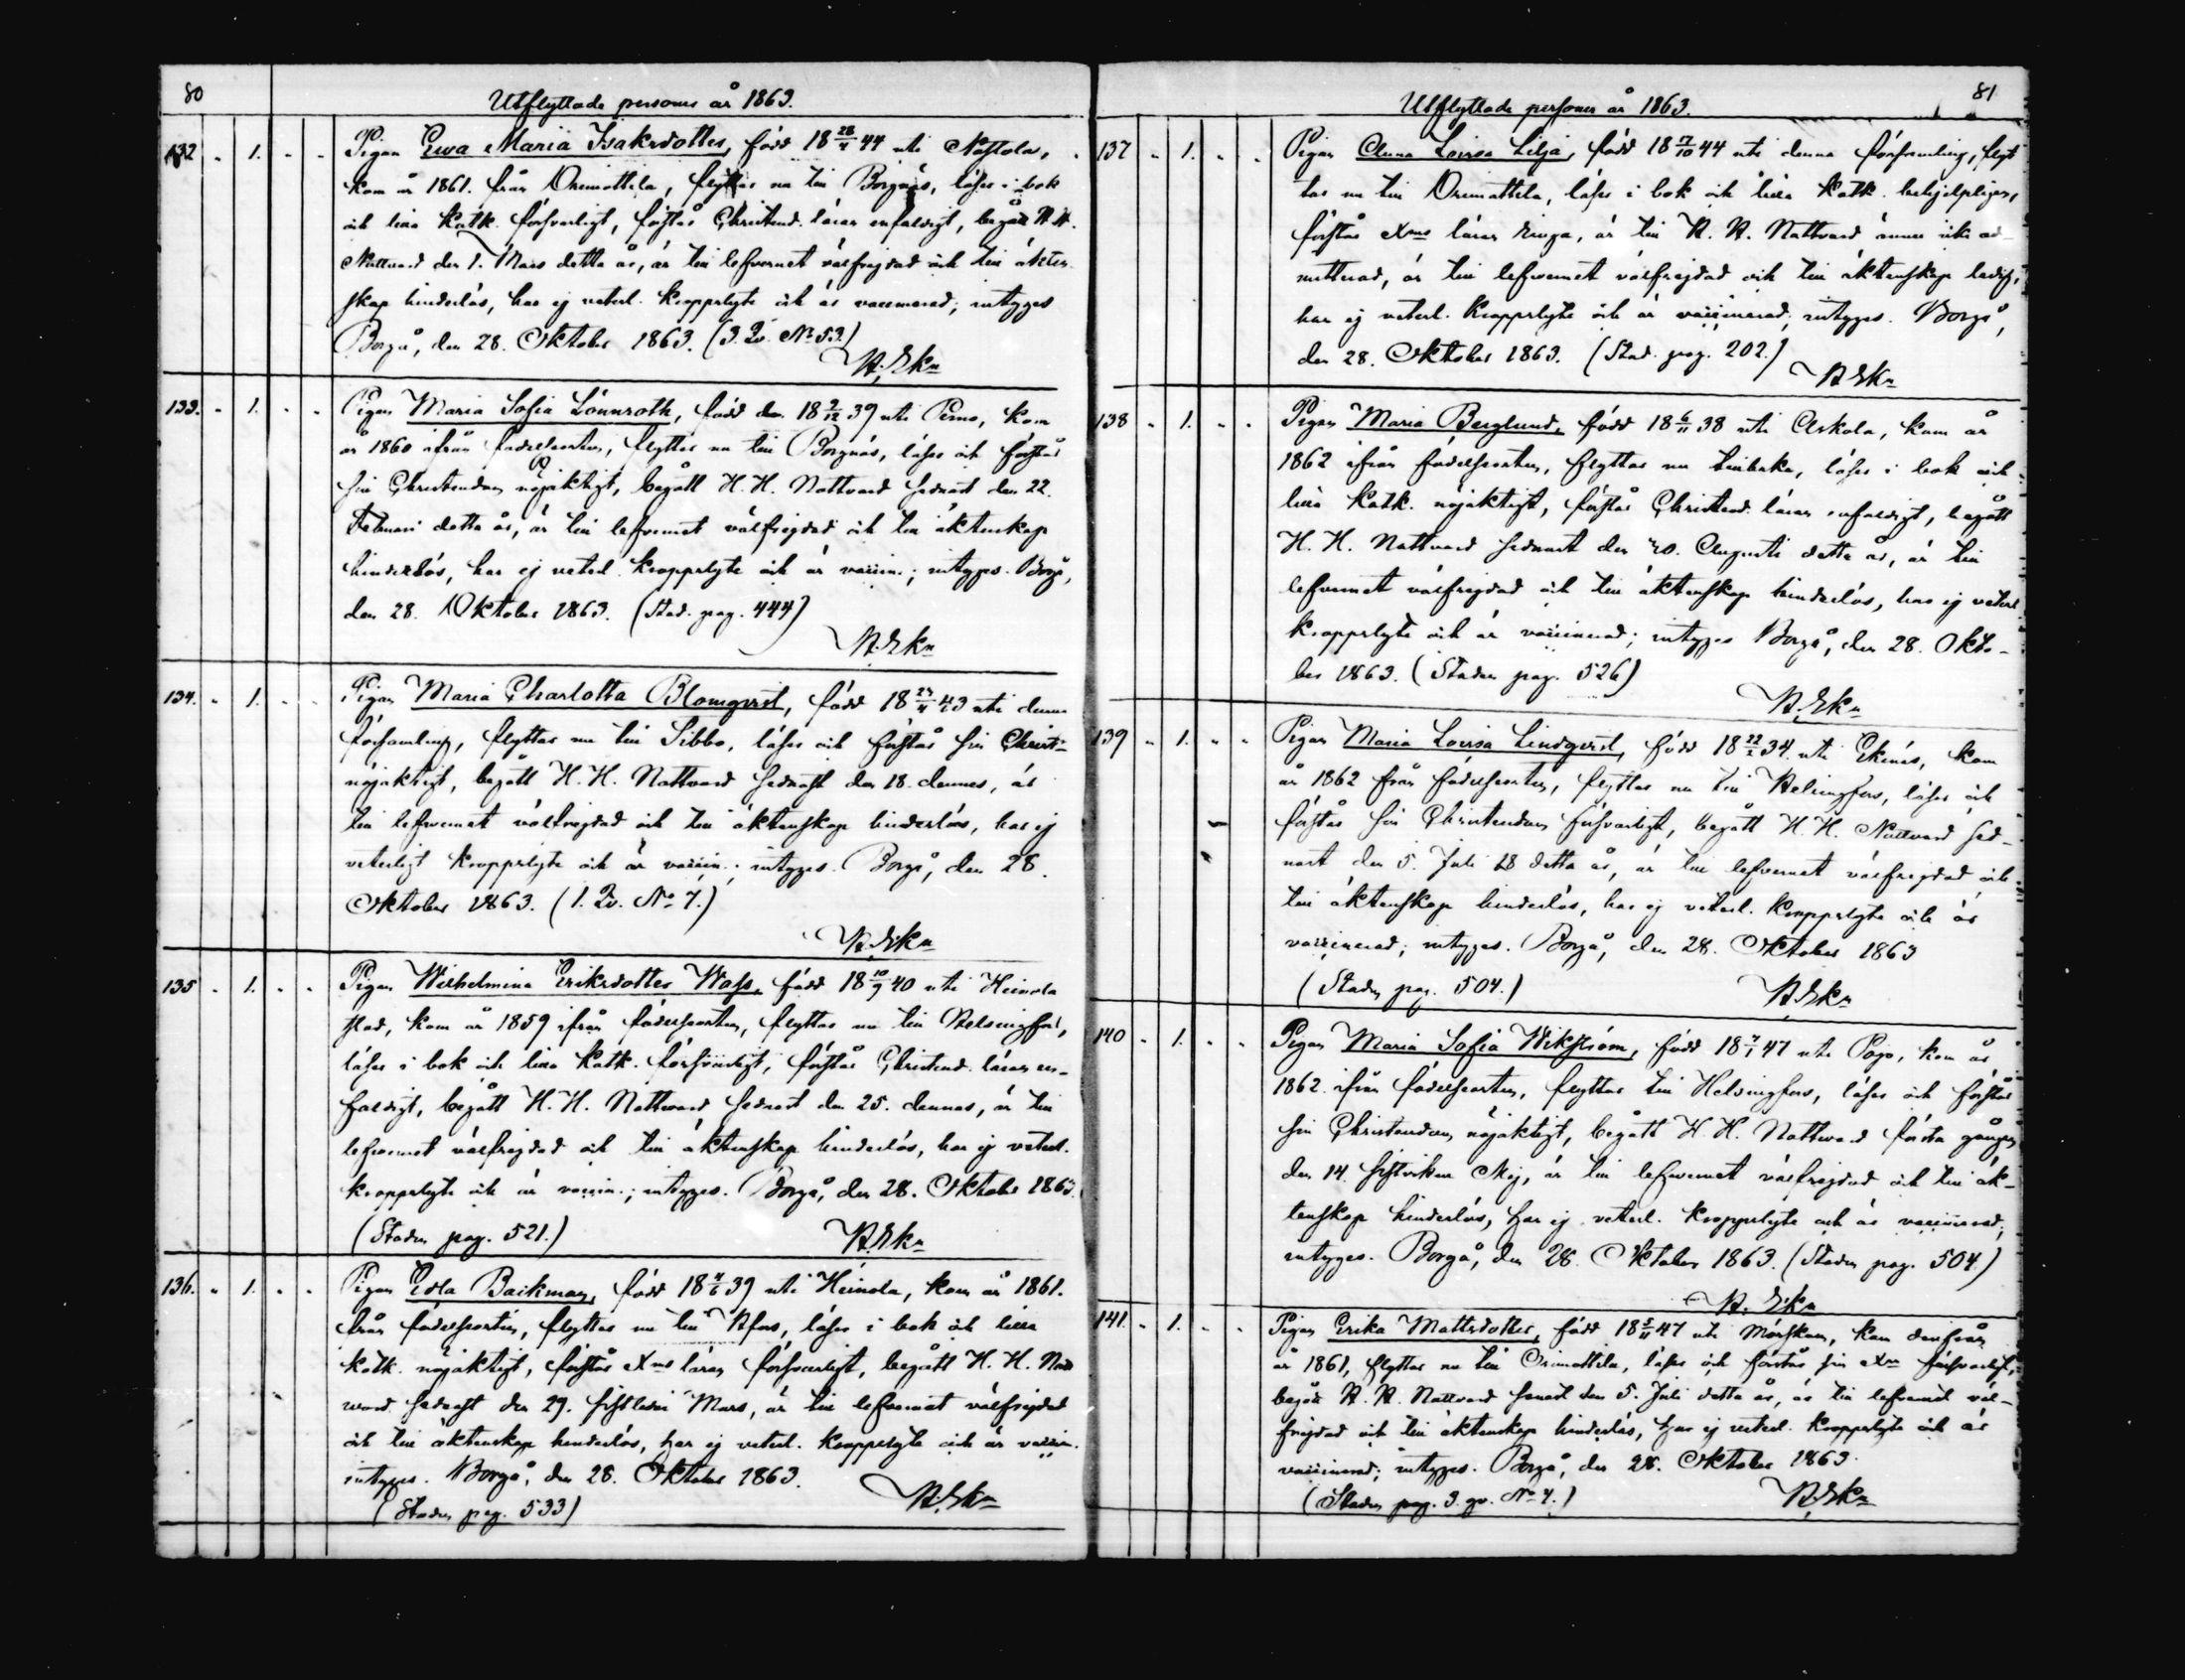 80
Utflyttade persones år 1863.
132 " 1. " " Pigan Ewa Maria Isaksdotter, född 18 28/4 44 uti Nastola,
kom år 1861. från Orimattila, flyttas nu till Borgnäs, läser i bok
och lilla Katk. försvarligt, förstår Christend. läran enfaldigt, begått H. H.
Nattvard den 1. Mars detta år, är till lefvernet välfrejdad och till äkten-
skap hinderlös, har ej veterl. kroppslyte och är vaccinerad; intygas
Borgå, den 28. Oktober 1863. (3. Qv. No 53.)
H. Ekn
133. " 1. " " Pigan Maria Sofia Lönnroth, född den 18 2/12 39 uti Perno, kom
år 1860 ifrån födelseorten, flyttas nu till Borgnäs, läser och förstår
sin Christendom nöjaktigt, begått H. H. Nattvard sednast den 22.
Februari detta år, är till lefvernet välfrejdad och till äktenskap
hinderlös, har ej veterl. kroppslyte och är vaccin.; intygas. Borgå,
den 28. Oktober 1863. (Stad. pag. 444)
H. Ekn
134. " 1. " " Pigan Maria Charlotta Blomqvist, född 18 43 uti denna
församling, flyttas nu till Sibbo, läser och förstår sin Christ:
nöjaktigt, begått H. H. Nattvard sednast den 18. dennes, är
till lefvernet välfrejdad och till äktenskap hinderlös, har ej
veterligt kroppslyte och är vaccin.; intygas. Borgå, den 28.
Oktober 1863. (1. Qv. No 7.)
H. Ekn
135 " 1. " " Pigan Wilhelmina Eriksdotter Wass, född 18 10/9 40 uti Heinola
stad, kom år 1859 ifrån födelseorten, flyttas nu till Helsingfors,
läser i bok och lilla Katk. försvarligt, förstår Christend. läran en-
faldigt, begått H. H. Nattvard sednast den 25. dennes, är till
lefvernet välfrejdad och till äktenskap hinderlös, har ej veterl.
kroppslyte och är vaccin.; intygas. Borgå, den 28. Oktober 1863.
(Staden pag. 521.)
H. Ekn
136. " 1. " " Pigan Edla Backman, född 18 4/6 39 uti Heinola, kom år 1861.
från födelseorten, flyttas nu till Hfors, läser i bok och lilla
katk. nöjaktigt, förstår Xms läran försvarligt, begått H. H. Natt
vard sednast den 29. sistledne Mars, är till lefvernet välfrejdad
och till äktenskap hinderlös, har ej veterl. kroppslyte och är vaccin.
intygas. Borgå, den 28. Oktober 1863.
(Staden pag. 533)
H. Ekn
81
Utflyttade personer år 1863.
137 " 1. " " Pigan Anna Lovisa Lilja, född 18 17/10 44 uti denna församling, flyt
tas nu till Orimattila, läser i bok och lilla Katk. behjelpligen,
förstår Xms läran ringa, är till H. H. Nattvard ännu icke ad-
mitterad, är till lefvernet välfrejdad och till äktenskap ledig,
har ej veterl. kroppslyte och är vaccinerad; intygas. Borgå,
den 28. Oktober 1863. (Stad. pag. 202.)
H Ekn
138 " 1. " " Pigan Maria Berglund, född 18 6/11 38 uti Askola, kom år
1862 ifrån födelseorten, flyttas nu tillbaka, läser i bok och
lilla Katk. nöjaktigt, förstår Christend. läran enfaldigt, begått
H. H. Nattvard sednast den 30. Augusti detta år, är till
lefvernet välfrejdad och till äktenskap hinderlös, har ej veterl.
kroppslyte och är vaccinerad; intygas Borgå, den 28. Okto-
ber 1863. (Staden pag. 526)
H. Ekn
139 " 1. " " Pigan Maria Lovisa Lindqvist, född 18 34 uti Ekenäs, kom
år 1862 från födelseorten, flyttas nu till Helsingfors, läser och
förstår sin Christendom försvarligt, begått H. H. Nattvard sed-
nast den 5. Juli detta år, är till lefvernet välfrejdad och
till äktenskap hinderlös, har ej veterl. kroppslyte och är
vaccinerad; intygas. Borgå, den 28. Oktober 1863
(Staden pag. 504.)
H. Ekn
140 " 1. " " Pigan Maria Sofia Wikström, född 18 7/1 47 uti Pojo, kom år
1862. ifrån födelseorten, flyttas till Helsingfors, läser och förstår
sin Christendom nöjaktigt, begått H. H. Nattvard första gången
den 14. sistvikne Maj, är till lefvernet välfrejdad och till äk-
tenskap hinderlös, har ej veterl. kroppslyte och är vaccinerad;
intygas. Borgå, den 28. Oktober 1863. (Staden pag. 504)
H. Ekn
141. " 1. " " Pigan Erika Mattsdotter, född 18 5/11 47 uti Mörskom, kom därifrån
år 1861, flyttas nu till Orimattila, läser och förstår sin Xm försvarligt,
begått H. H. Nattvard senast den 5. Juli detta år, är till lefvernet väl-
frejdad och till äktenskap hinderlös, har ej veterl. kroppslyte och är
vaccinerad; intygas. Borgå, den 28. Oktober 1863.
(Staden pag. 3. qv. No 7.)
H. Ekn